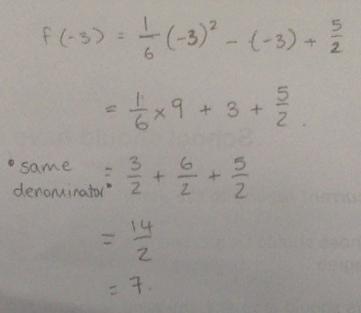 f(-3) = 1/6 (-3)² - (-3) + 5/2
= 1/6 × 9 + 3 + 5/2.
"same denominator" = 3/2 + 6/2 + 5/2
= 14/2
= 7.